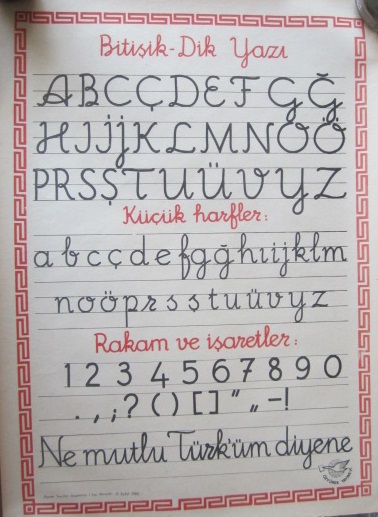 Bitişik-Dik Yazı
A B C Ç D E F G Ğ
H I İ J K L M N O Ö
P R S Ş T U Ü V Y Z
Küçük harfler:
a b c ç d e f g ğ h ı i j k l m
n o ö p r s ş t u ü v y z
Rakam ve işaretler:
1 2 3 4 5 6 7 8 9 0
. , ; ? ( ) [ ] " „ - !
Ne mutlu Türk'üm diyene